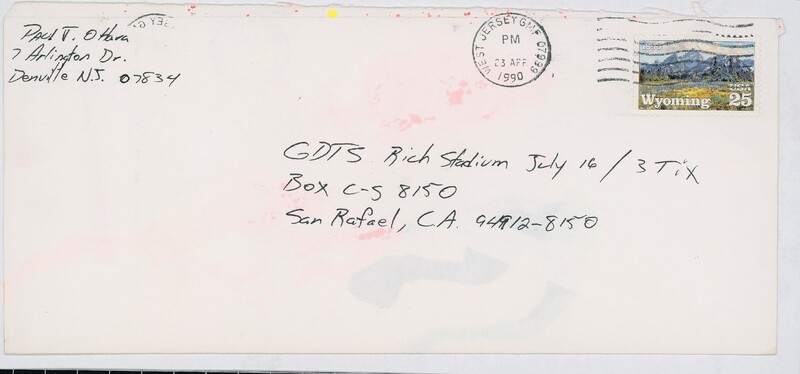 Paul T. OHara
7 Arlington Dr.
Denville N.J. 07834
WEST JERSEY GMF 07999
PM
23 APR
1990
USA
Wyoming 25
GDTS Rich Stadium July 16 / 3 Tix
Box C-S 8150
San Rafael, CA. 94912-8150